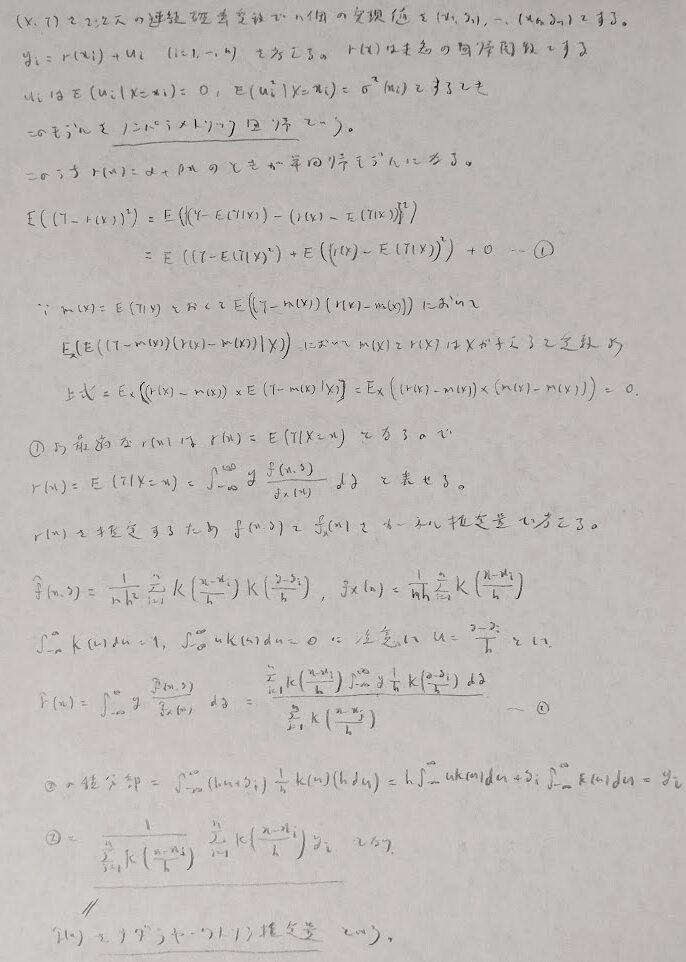 (X, Y) を2次元の連続確率変数でn個の実現値を (x₁,y₁), …, (xₙ,yₙ) とする。
yᵢ = r(xᵢ) + uᵢ (i=1, …, n) を考える。r(x)は未知の回帰関数とする
uᵢは E(uᵢ|X=xᵢ) = 0, E(uᵢ²|X=xᵢ) = σ²(xᵢ) とするとき
このモデルを ノンパラメトリック回帰 という。
このうち r(x) = α + βx のときが単回帰モデルになる。
E((Y-r(X))²) = E({(Y-E(Y|X)) - (r(X) - E(Y|X))}²)
= E((Y-E(Y|X)²) + E((r(X) - E(Y|X))²) + 0 … ①
∵ m(X) = E(Y|X) とおくと E((Y-m(X))(r(X)-m(X))) において
Eₓ(E((Y-m(X))(r(X)-m(X))|X)) において m(X)と r(X) は Xが与えると定数より
上式 = Eₓ[(r(X) - m(X)) × E(Y-m(X)|X)] = Eₓ((r(X)-m(X)) × (m(X)-m(X))) = 0.
①より最適な r(x) は r(x) = E(Y|X=x) となるので
r(x) = E(Y|X=x) = ∫_{-∞}^{∞} y f(x,y)/fₓ(x) dy と表せる。
r(x) を推定するため f(x,y) と fₓ(x) を カーネル推定量で考える。
f̂(x,y) = 1/(nh²) Σ_{i=1}^{n} K((x-xᵢ)/h) K((y-yᵢ)/h), fₓ(x) = 1/(nh) Σ_{i=1}^{n} K((x-xᵢ)/h)
∫_{-∞}^{∞} K(u)du = 1, ∫_{-∞}^{∞} uK(u)du = 0 に注意し u = (y-yᵢ)/h とし
r̂(x) = ∫_{-∞}^{∞} y f̂(x,y)/f̂ₓ(x) dy = Σ_{i=1}^{n} K((x-xᵢ)/h) ∫_{-∞}^{∞} y 1/h K((y-yᵢ)/h) dy / Σ_{j=1}^{n} K((x-xⱼ)/h) … ②
②の積分部 = ∫_{-∞}^{∞} (hu+yᵢ) 1/h K(u)(hdu) = h∫_{-∞}^{∞} uK(u)du + yᵢ ∫_{-∞}^{∞} K(u)du = yᵢ
② = 1/(Σ_{j=1}^{n} K((x-xⱼ)/h)) Σ_{i=1}^{n} K((x-xᵢ)/h) yᵢ となり
r̂(x) を ナダラヤ-ワトソン推定量 という。